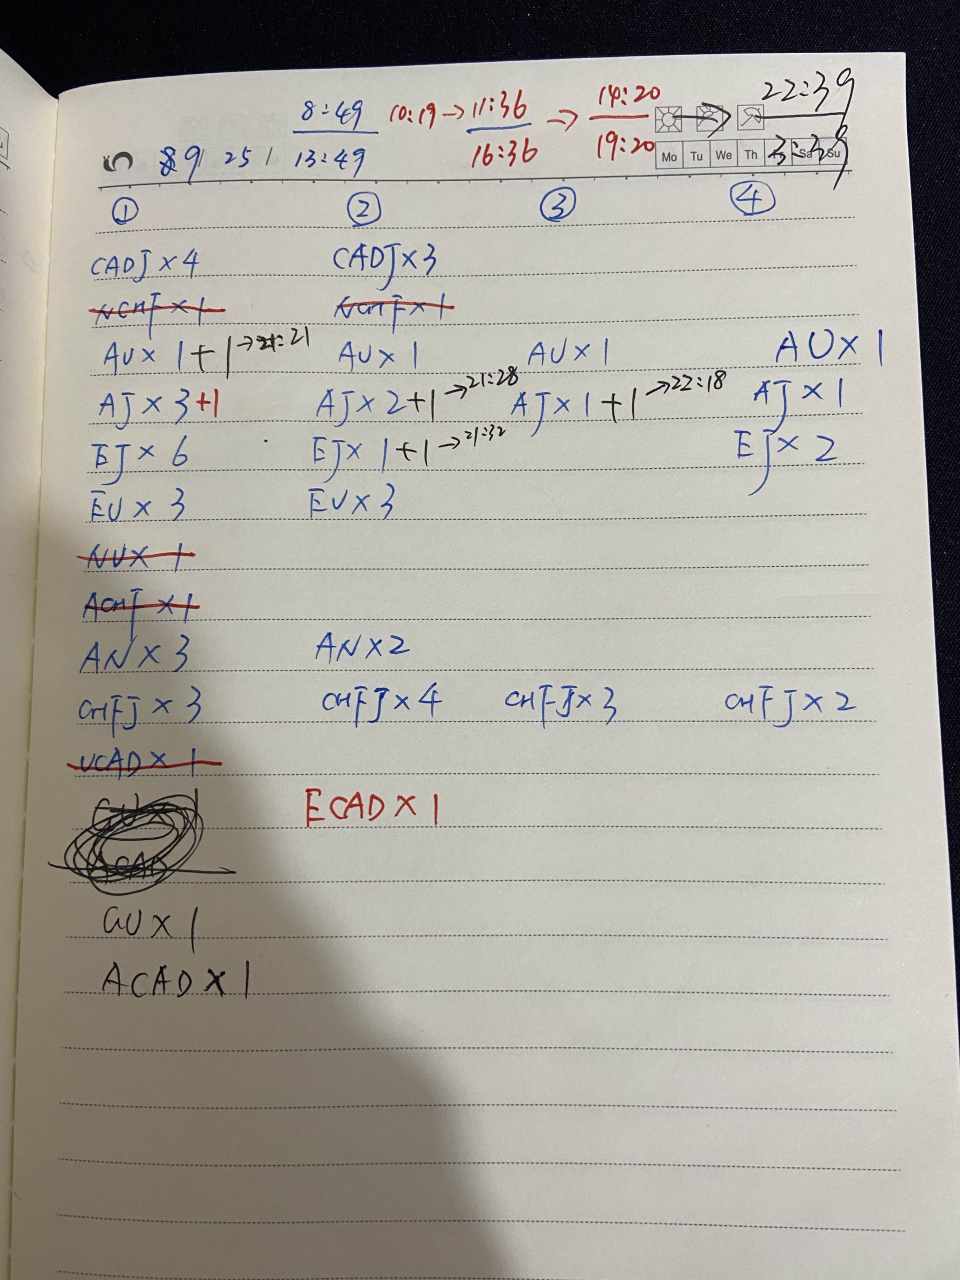 8:49 10:19 → 11:36 → 14:20 22:39
5 9 25 13:49 16:36 19:20 3:39
Mo Tu We Th Sa Su
① ② ③ ④
CADJ × 4 CADJ × 3
NCHF × 1 NCHF × 1
AU × 1 + 1 → 21:21 AU × 1 AU × 1 AU × 1
AJ × 3 +1 AJ × 2 + 1 → 21:28 AJ × 1 + 1 → 22:18 AJ × 1
EJ × 6 EJ × 1 + 1 → 21:32 EJ × 2
EU × 3 EU × 3
NU × 1
ACHF × 1
AN × 3 AN × 2
CHFJ × 3 CHFJ × 4 CHFJ × 3 CHFJ × 2
UCAD × 1
ECAD × 1
ACAD
GU × 1
ACAD × 1